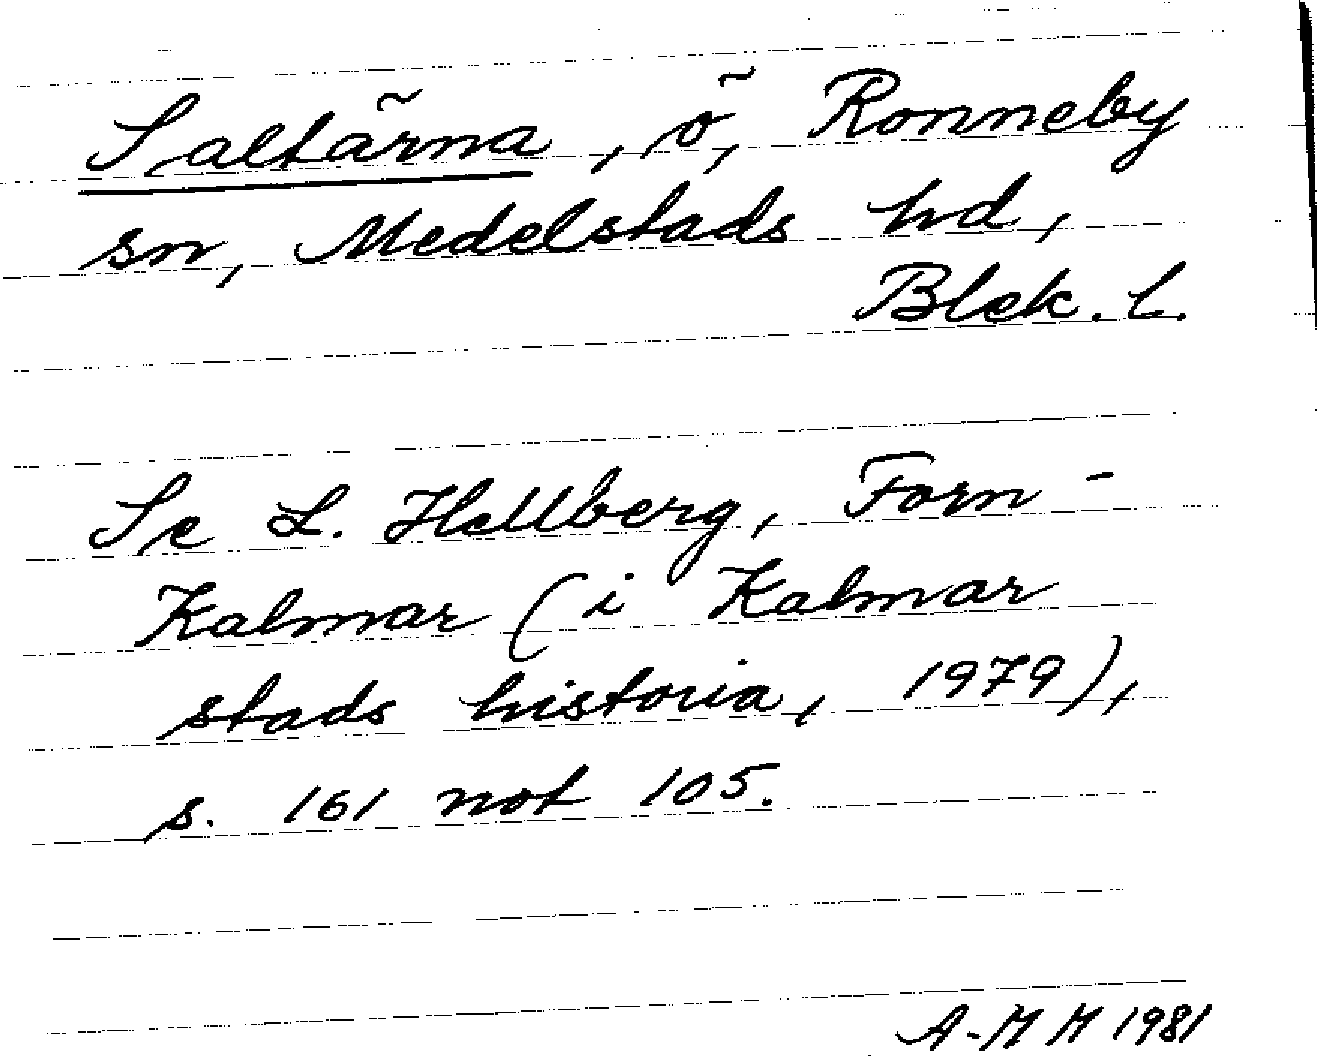 Saltärna, ö, Ronneby
sn, Medelstads hd,
Blek. l.
Se L. Hellberg, Forn-
Kalmar (i Kalmar
stads historia, 1979),
s. 161 not 105.
A-M H 1981